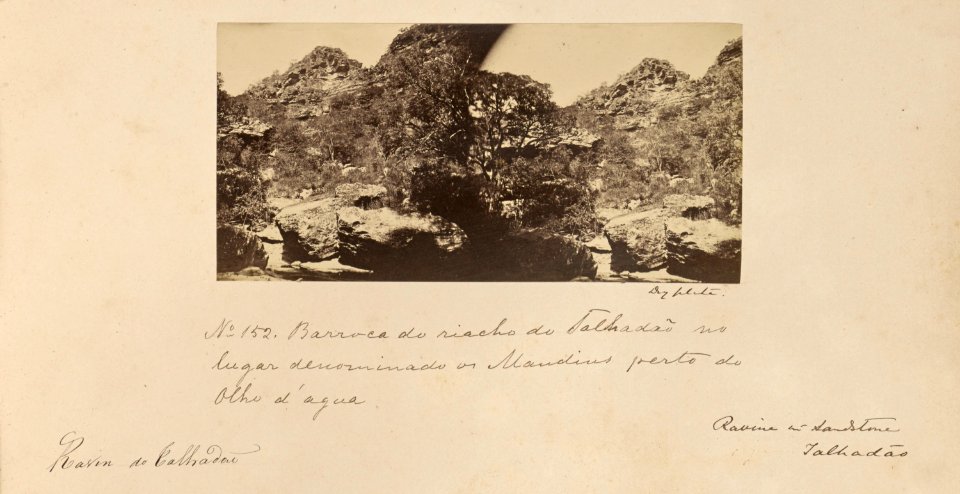 Dry plate.
Nº 152. Barroca do riacho do Talhadão no
lugar denominado os Mandins perto do
Olho d'agua
Ravine in sandstone
Talhadão
Ravin do Talhadão